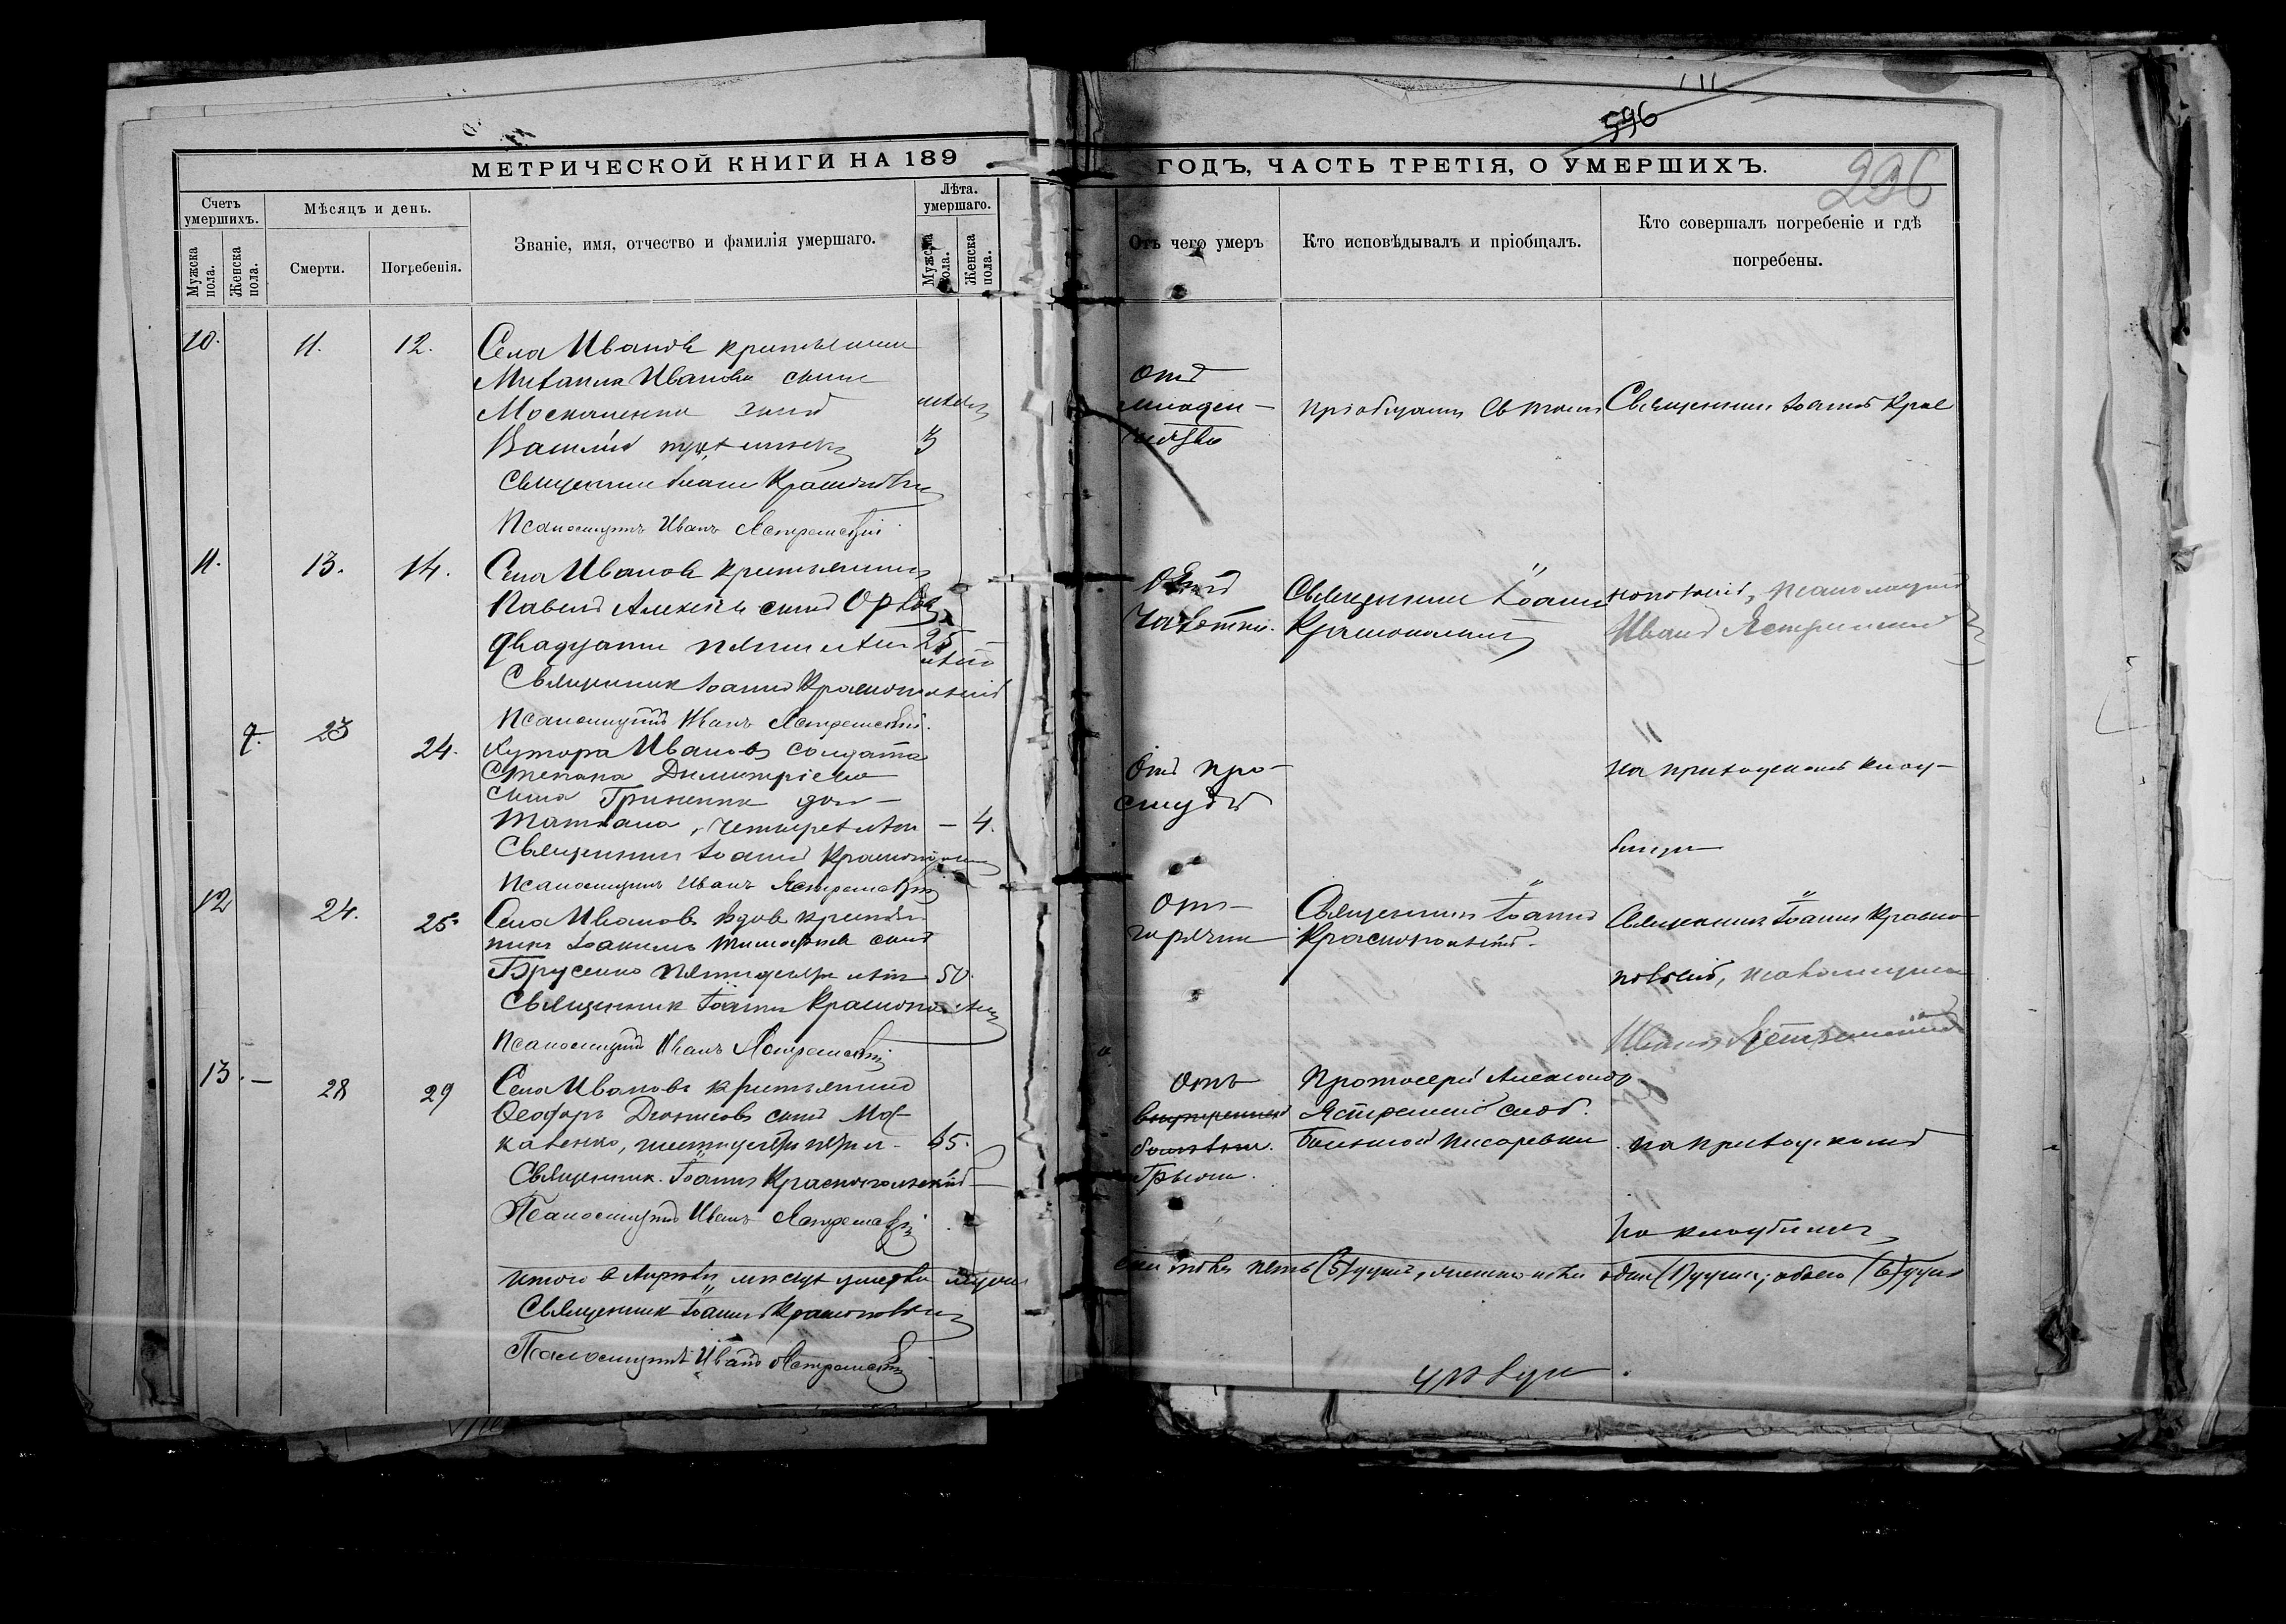 596
226
МЕТРИЧЕСКОЙ КНИГИ НА 189
ГОДЪ, ЧАСТЬ ТРЕТІЯ, О УМЕРШИХЪ.
Счетъ умершихъ.
Мужска пола.
Женска пола.
Мѣсяцъ и день.
Смерти.
Погребенія.
Званіе, имя, отчество и фамилія умершаго.
Лѣта. умершаго.
Мужска пола.
Женска пола.
Отъ чего умеръ
Кто исповѣдывалъ и пріобщалъ.
Кто совершалъ погребеніе и гдѣ
погребены.
10. 11. 12. Села Иванов крестьянин
Михаила Иванова сына
Москаленка
Василій 3
Священник Іоанн Краснопольскій
Псаломщикъ Иванъ Ястремскій
Отъ
младен-
чества
Священник Іоаннъ Крас
11. 13. 14. Села Иванов крестьянин
Павелъ Алексѣевъ сынъ
двадцати пяти лѣтъ 25
лѣтъ
Священник Іоаннъ Краснопольскій
Псаломщикъ Иванъ Ястремскій.
Отъ
чахотки.
Священник Іоаннъ
Краснопольскій
нопольскій, псаломщикъ
Иванъ Ястремскій
7. 23 24. Хутора Иванов солдата
Степана Димитріева
сына Гриненка дочь
Татіана, четырехъ лѣтъ — 4.
Священник Іоаннъ Краснопольскій
Псаломщикъ Иванъ Ястремскій
Отъ про-
студы
на приходскомъ клад-
бищѣ
12 24. 25. Села Иванов вдов крестья-
нинъ Іоакимъ Тимофеев сынъ
Брусенко пятидесяти лѣтъ 50.
Священник Іоаннъ Краснопольскій
Псаломщикъ Иванъ Ястремскій
Отъ
горячки
Священник Іоаннъ
Краснопольскій.
Священникъ Іоаннъ Красно-
польскій, псаломщикъ
Иванъ Ястремскій
13. — 28 29 Села Иванов крестьянинъ
Ѳеодоръ Діонисовъ сынъ Мос-
каленко, шестидесяти пяти л. 65.
Священник Іоаннъ Краснопольскій
Псаломщикъ Иванъ Ястремскій
Отъ
внутренней
болѣзни.
Протоіерей Александръ
Ястремскій слоб.
Большой Писаревки
на приходскомъ
кладбищѣ
Итого в Апрѣлѣ мѣсяцѣ умерло мужескаго пола пять (5) душъ, женска пола одна (1) душа; обоего (6) душъ
Священник Іоаннъ Краснопольскій
Псаломщикъ Иванъ Ястремскій